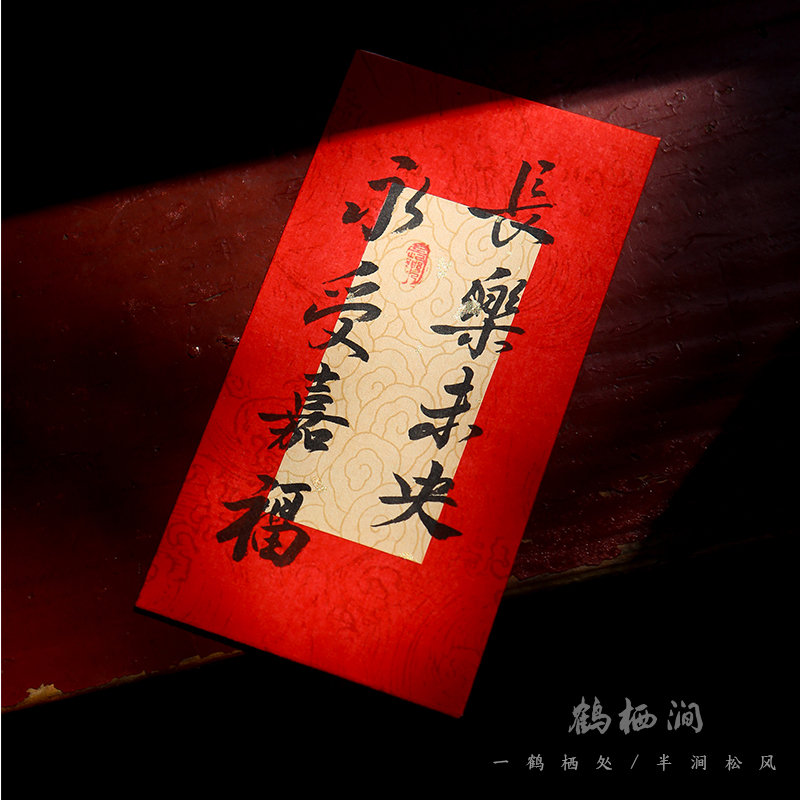 長樂未央
永受嘉福
鹤栖涧
一鹤栖处/半涧松风